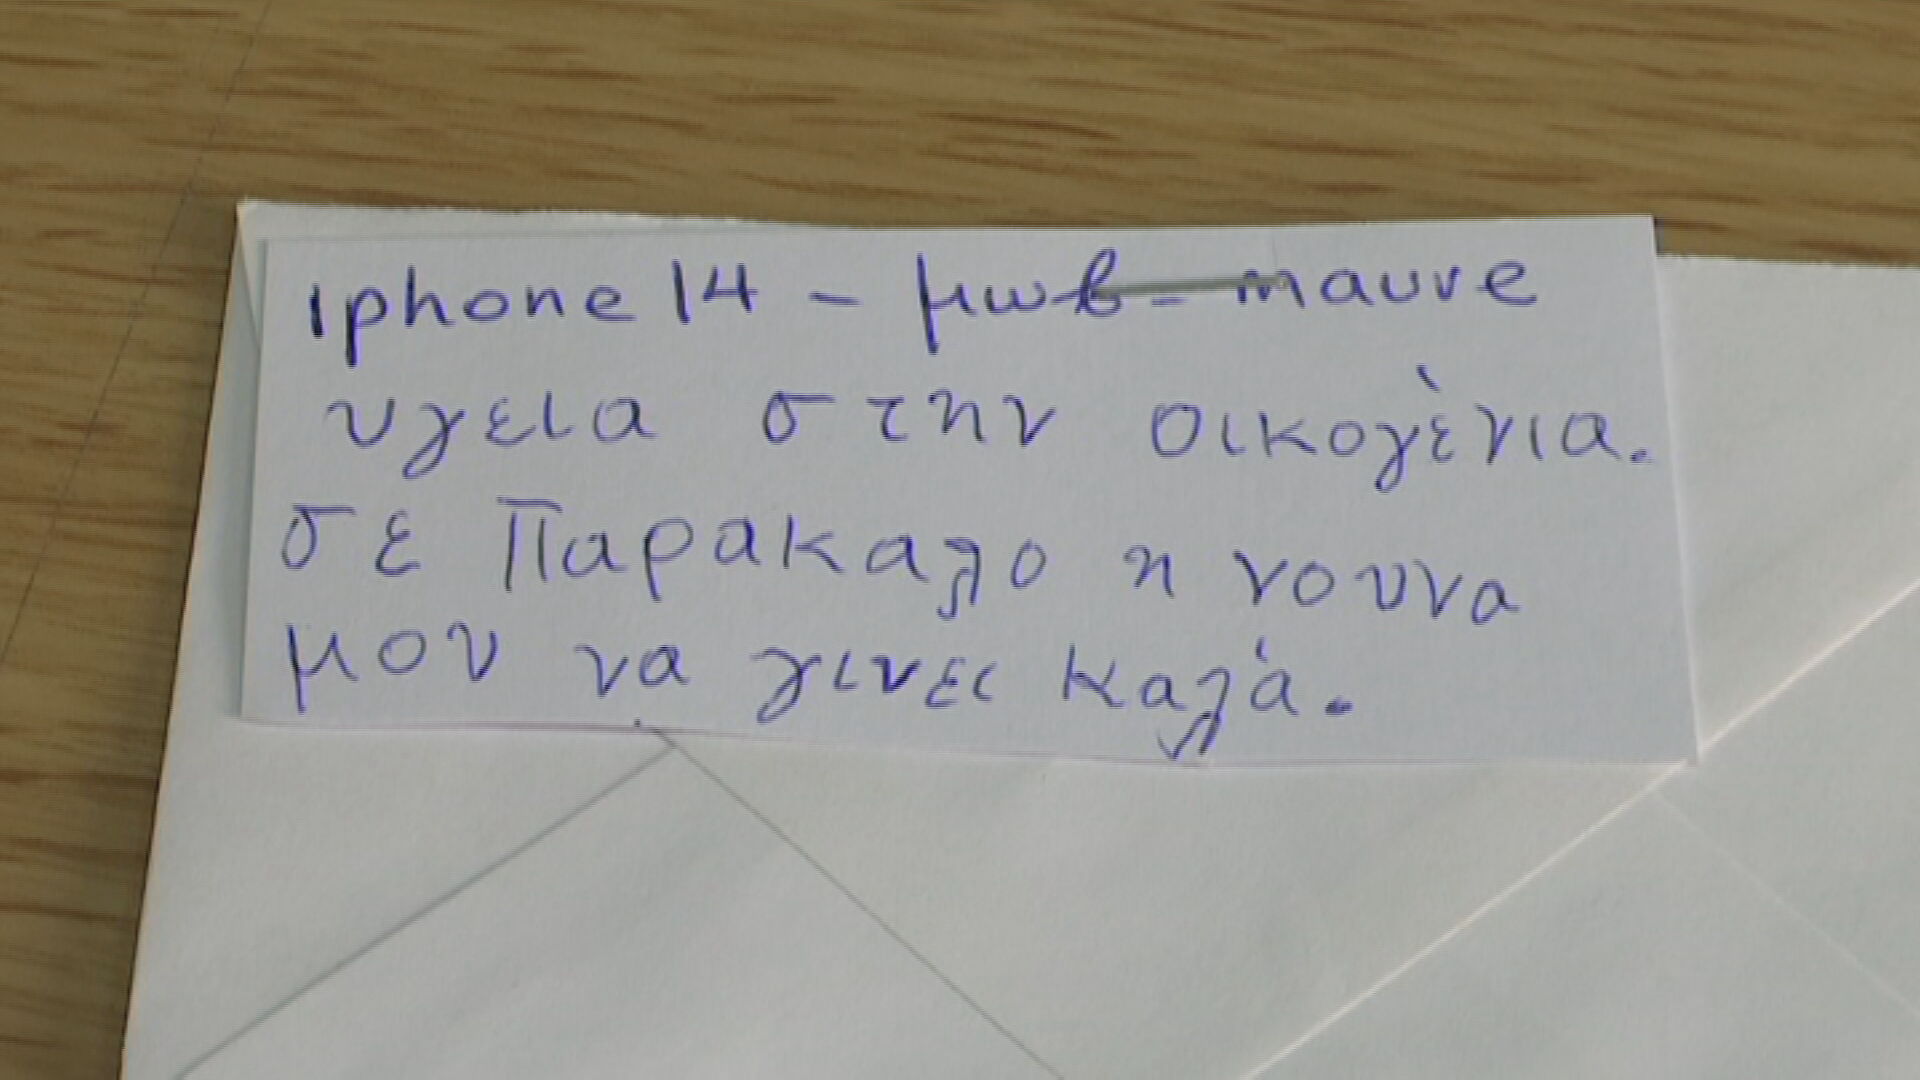 iphone 14 - μωβ - mauve
υγεια στην οικογὲνια.
σε Παρακαλο η νουνα
μου να γινει καλά.